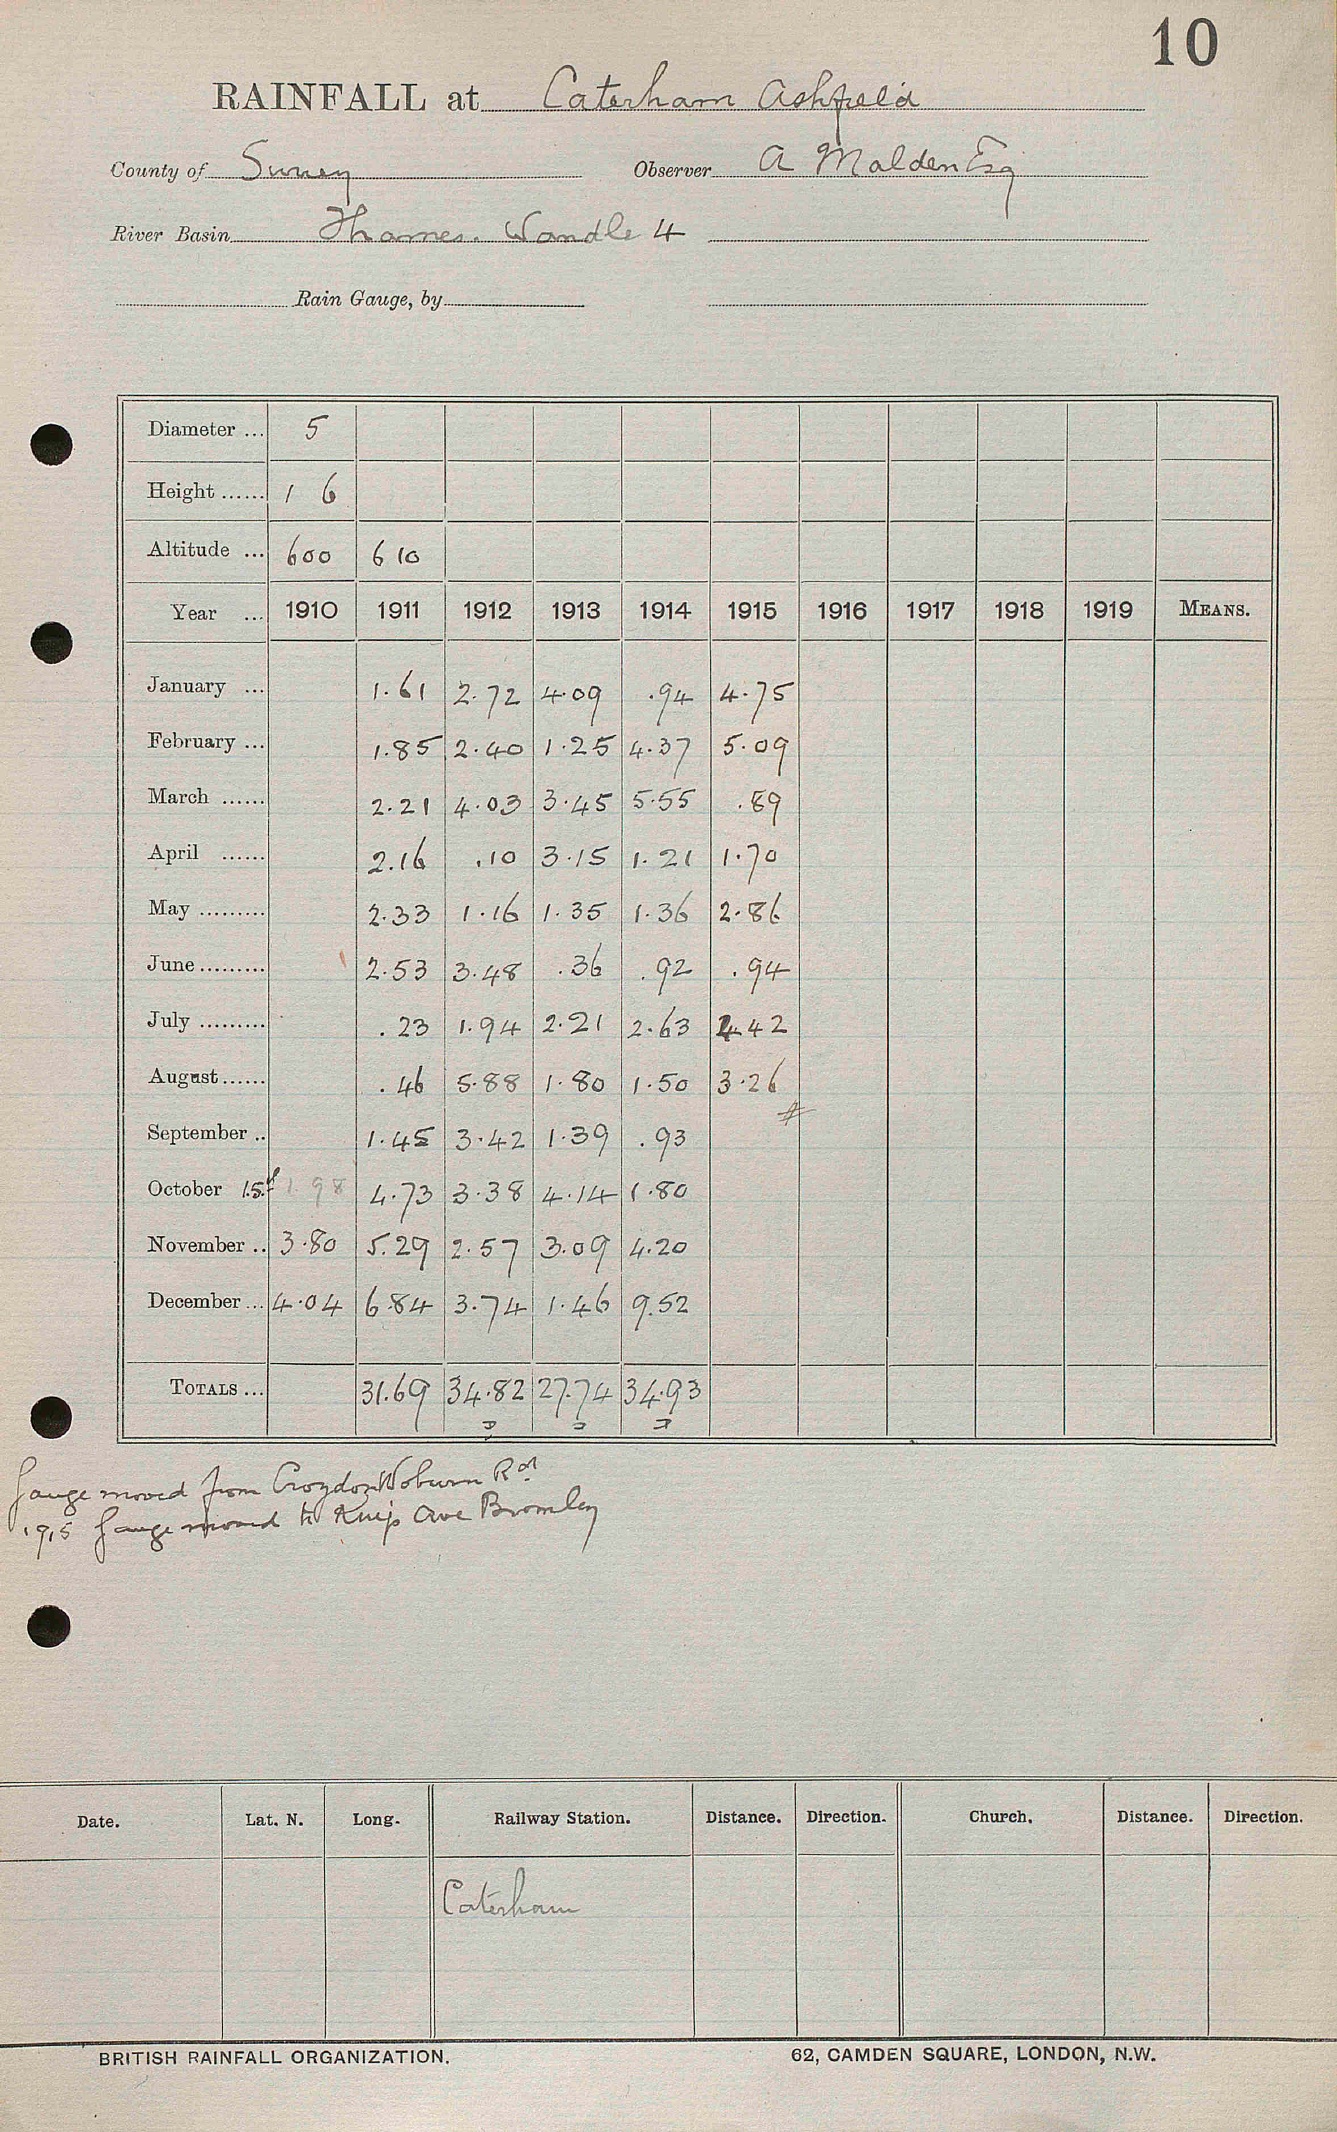 10
RAINFALL at Caterham Ashfield
County of Surrey Observer A Malden Esq
River Basin Thames. Wandle 4
Rain Gauge, by
Diameter ... 5
Height ...... 1 6
Altitude ... 600 610
Year ... 1910 1911 1912 1913 1914 1915 1916 1917 1918 1919 MEANS.
January ... 1.61 2.72 4.09 .94 4.75
February ... 1.85 2.40 1.25 4.37 5.09
March ...... 2.21 4.03 3.45 5.55 .89
April ...... 2.16 .10 3.15 1.21 1.70
May ......... 2.33 1.16 1.35 1.36 2.86
June ......... 2.53 3.48 .36 .92 .94
July ......... .23 1.94 2.21 2.63 4.42
August ...... .46 5.88 1.80 1.50 3.26
#
September .. 1.45 3.42 1.39 .93
October 1.98 4.73 3.38 4.14 1.80
November .. 3.80 5.29 2.57 3.09 4.20
December ... 4.04 6.84 3.74 1.46 9.52
TOTALS ... 31.69 34.82 27.74 34.93
Gauge moved from Croydon Woburn Rd
1915 Gauge moved to Ave Bromley
Date. Lat. N. Long. Railway Station. Distance. Direction. Church. Distance. Direction.
Caterham
BRITISH RAINFALL ORGANIZATION. 62, CAMDEN SQUARE, LONDON, N.W.